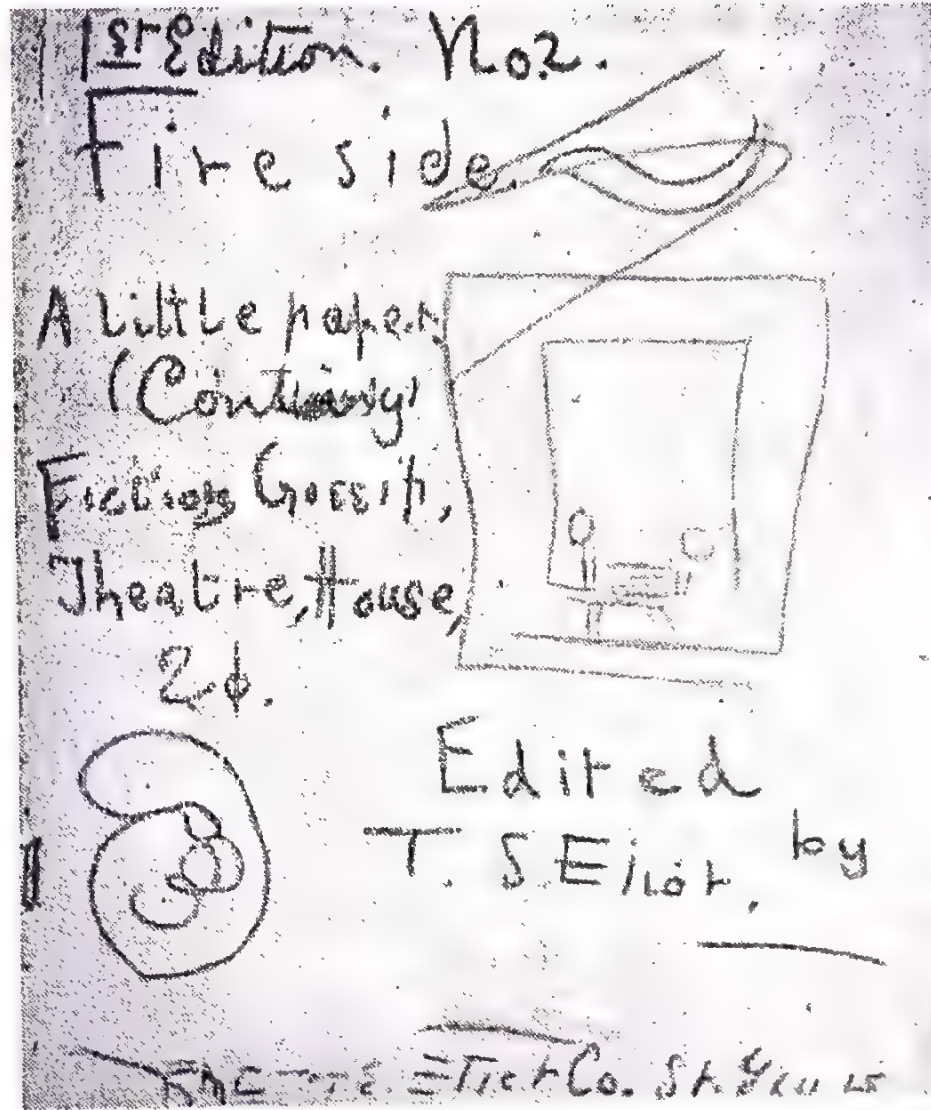 1st Edition. No2.
Fireside.
A Little paper
(Containing)
Fiction, Gossip,
Theatre, House,
2¢.
Edited
by
T. S Eliot.
Co. St